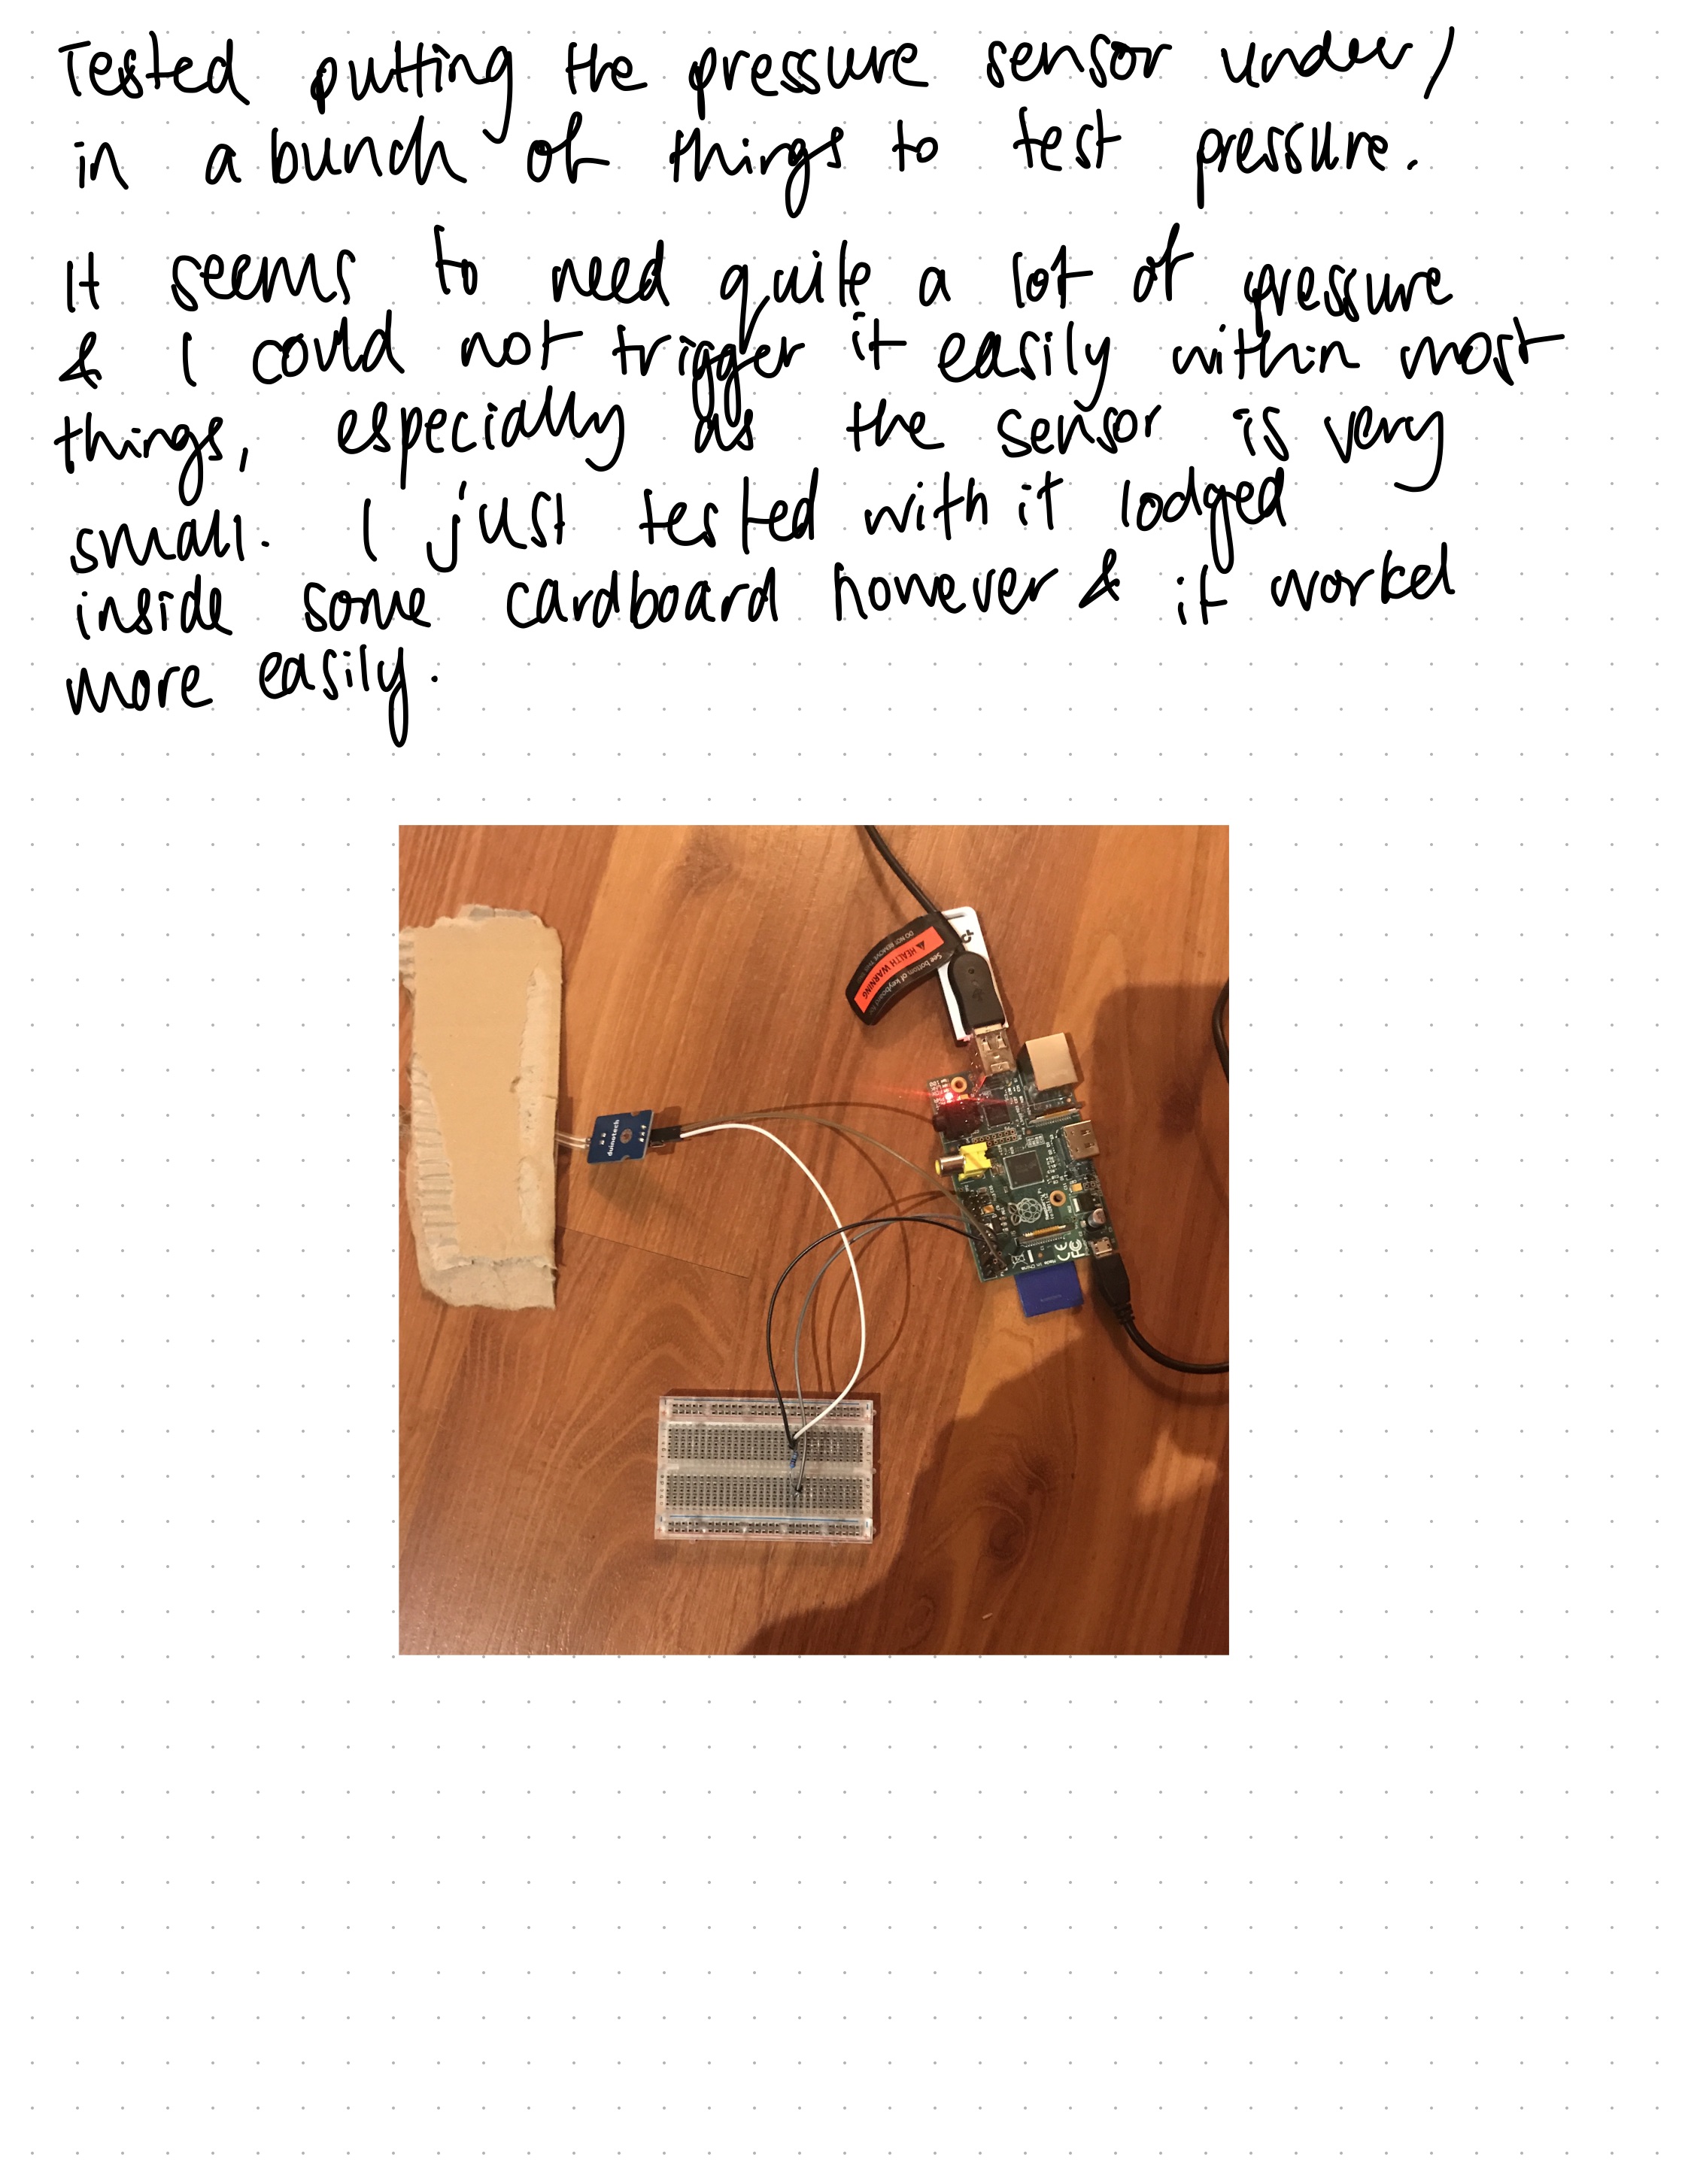 Tested putting the pressure sensor under/
in a bunch of things to test pressure.
It seems to need quite a lot of pressure
& I could not trigger it easily within most
things, especially as the sensor is very
small. I just tested with it lodged
inside some cardboard however & it worked
more easily.
DO NOT REMOVE THIS
HEALTH WARNING
See bottom of keyboard for
duinotech
CE
FC
Made in China